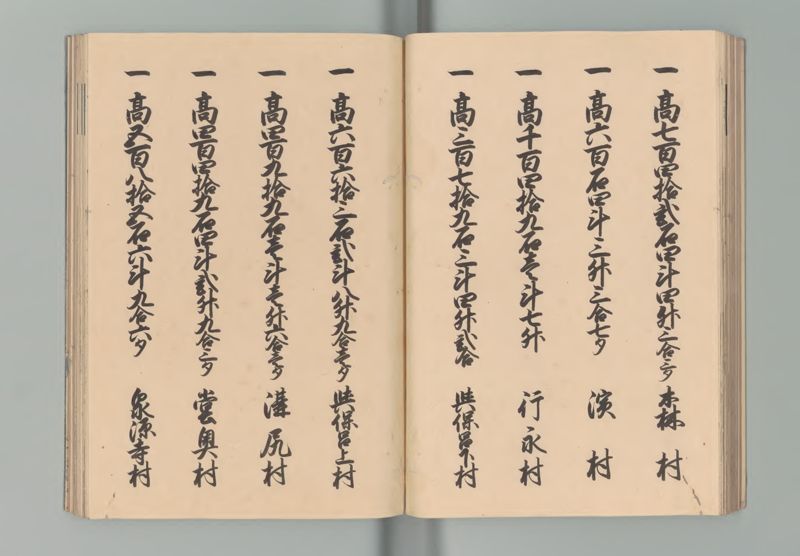 一 高七百四拾弐石四斗四升三合三夕 木林 村
一 高六百石四斗三升三合七夕 濱 村
一 高千百四拾九石壱斗七升 行永村
一 高三百七拾九石三斗四升弐合 與保呂下村
一 高六百六拾三石弐斗八升九合壱夕 與保呂上村
一 高四百九拾九石壱斗壱升六合壱夕 溝尻村
一 高四百四拾九石四斗弐升九合三夕 堂奥村
一 高五百八拾五石六斗九合六夕 泉源寺村